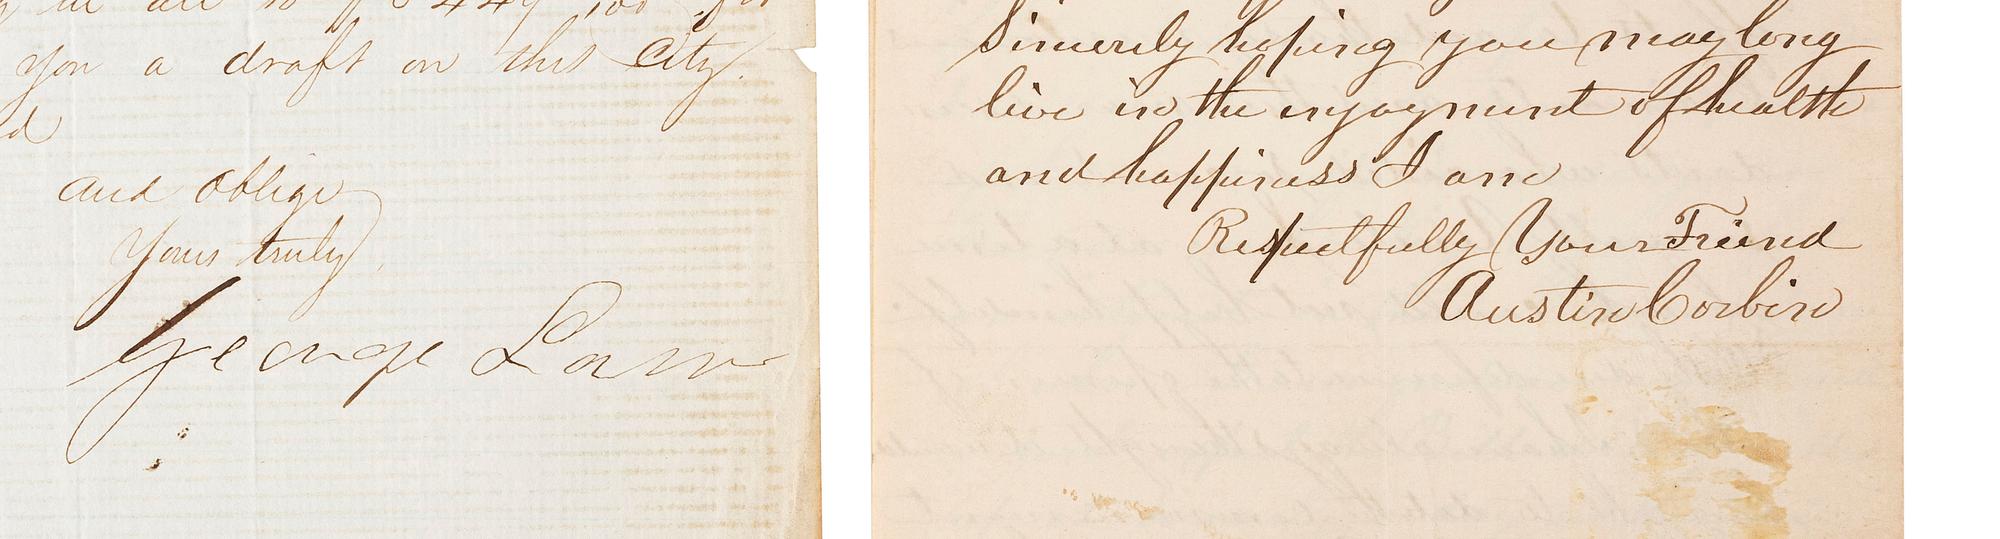 you a draft on this City.
and oblige
Yours truly,
George Law
Sincerely hoping you may long
live in the enjoyment of health
and happiness I am
Respectfully Your Friend
Austin Corbin